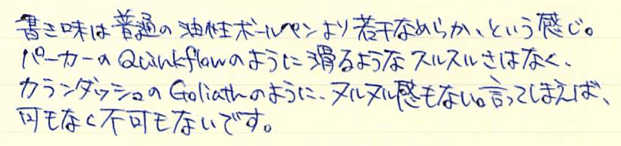 書き味は普通の油性ボールペンより若干なめらか、という感じ。
パーカーのQuinkflowのように滑るようなスルスルさはなく、
カランダッシュのGoliathのように、ヌルヌル感もない。言ってしまえば、
可もなく不可もないです。